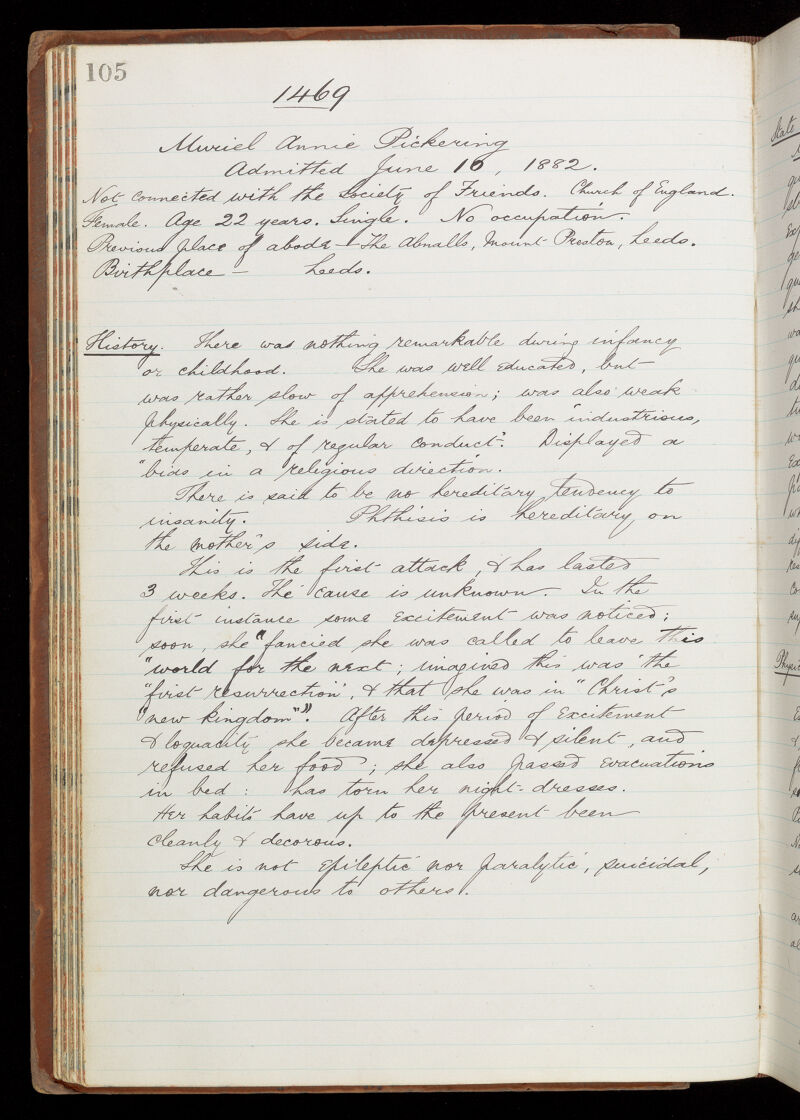 105
1469
Muriel Annie Pickering
Admitted June 16, 1882.
Not connected with the Society of Friends. Church of England.
Female. Age 22 years. Single. No occupation.
Previous place of abode — The Abnalls, Mount Preston, Leeds.
Birthplace — Leeds.
History. There was nothing remarkable during infancy
or childhood. She was well educated, but
was rather slow of apprehension; was also weak
physically. She is stated to have been "industrious,
temperate, & of regular conduct". Displayed a
"bias in a religious direction".
There is said to be no hereditary tendency to
insanity. Phthisis is hereditary on
the mother's side.
This is the first attack, & has lasted
3 weeks. The cause is unknown. In the
first instance some excitement was noticed;
soon, she "fancied she was called to leave this
"world for the next; imagined this was 'the
"first resurrection', & that she was in "Christ's
"new kingdom"". After this period of excitement
& loquacity she became depressed & silent, and
refused her food; she also passed evacuations
in bed: has torn her night-dresses.
Her habits have up to the present been
cleanly & decorous.
She is not epileptic nor paralytic, suicidal,
nor dangerous to others.
State
Physic